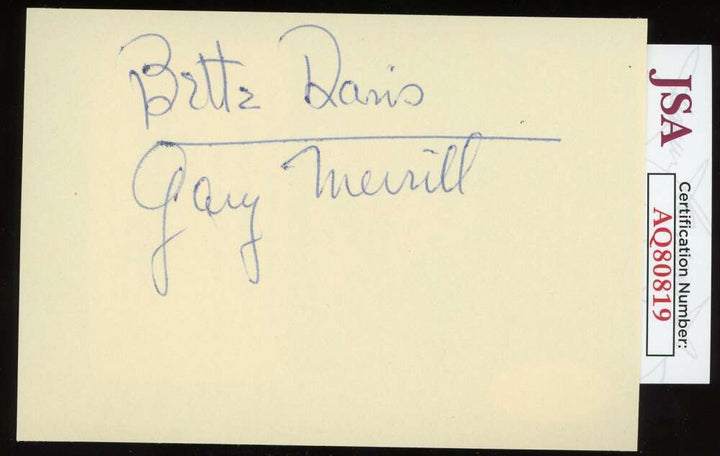 Bette Davis
Gary Merrill
JSA
Certification Number:
AQ80819